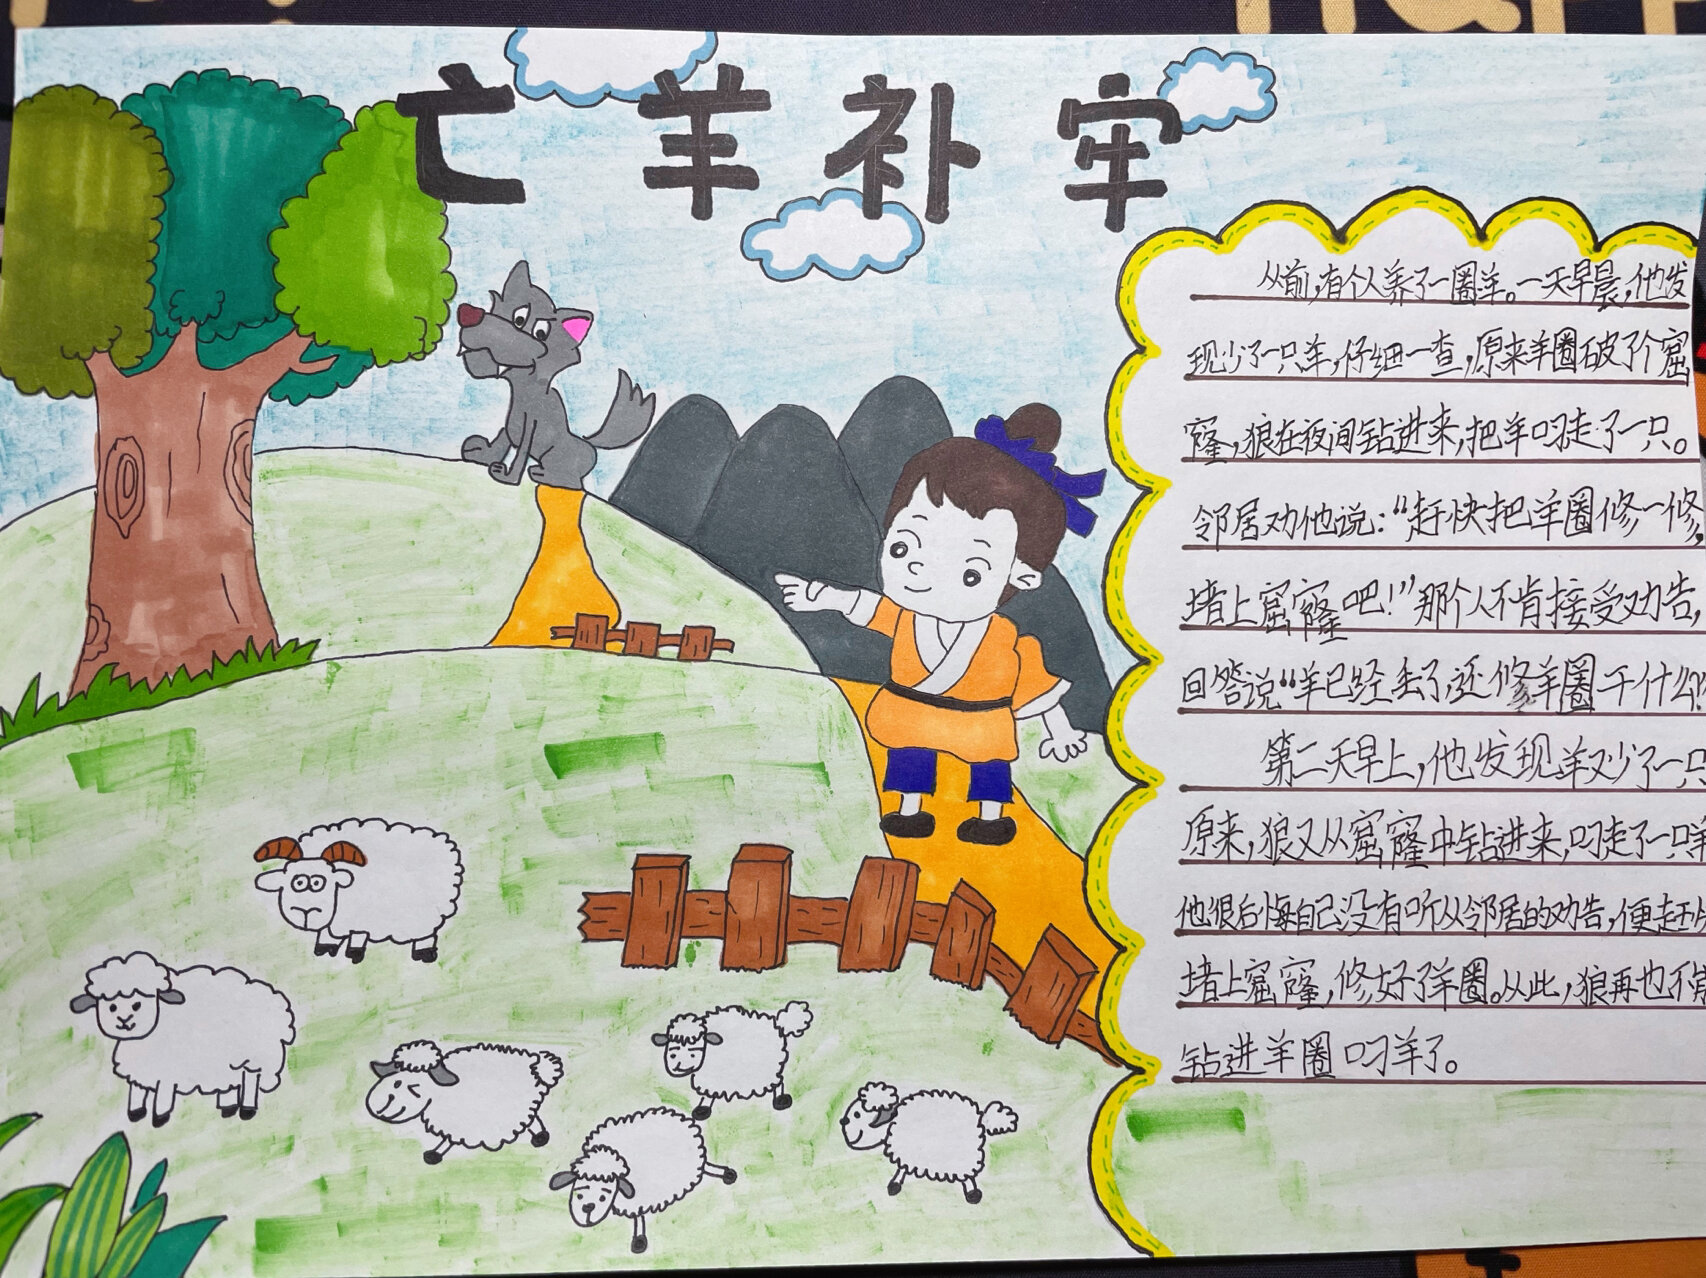 亡羊补牢
从前,有个人养了一圈羊。一天早晨,他发
现少了一只羊,仔细一查,原来羊圈破了个窟
窿,狼在夜间钻进来,把羊叼走了一只。
邻居劝他说:“赶快把羊圈修一修,
堵上窟窿吧!”那个人不肯接受劝告,
回答说“羊已经丢了,还修羊圈干什么?
第二天早上,他发现羊又少了一只
原来,狼又从窟窿中钻进来,叼走了一只羊
他很后悔自己没有听从邻居的劝告,便赶快
堵上窟窿,修好了羊圈。从此,狼再也不能
钻进羊圈叼羊了。